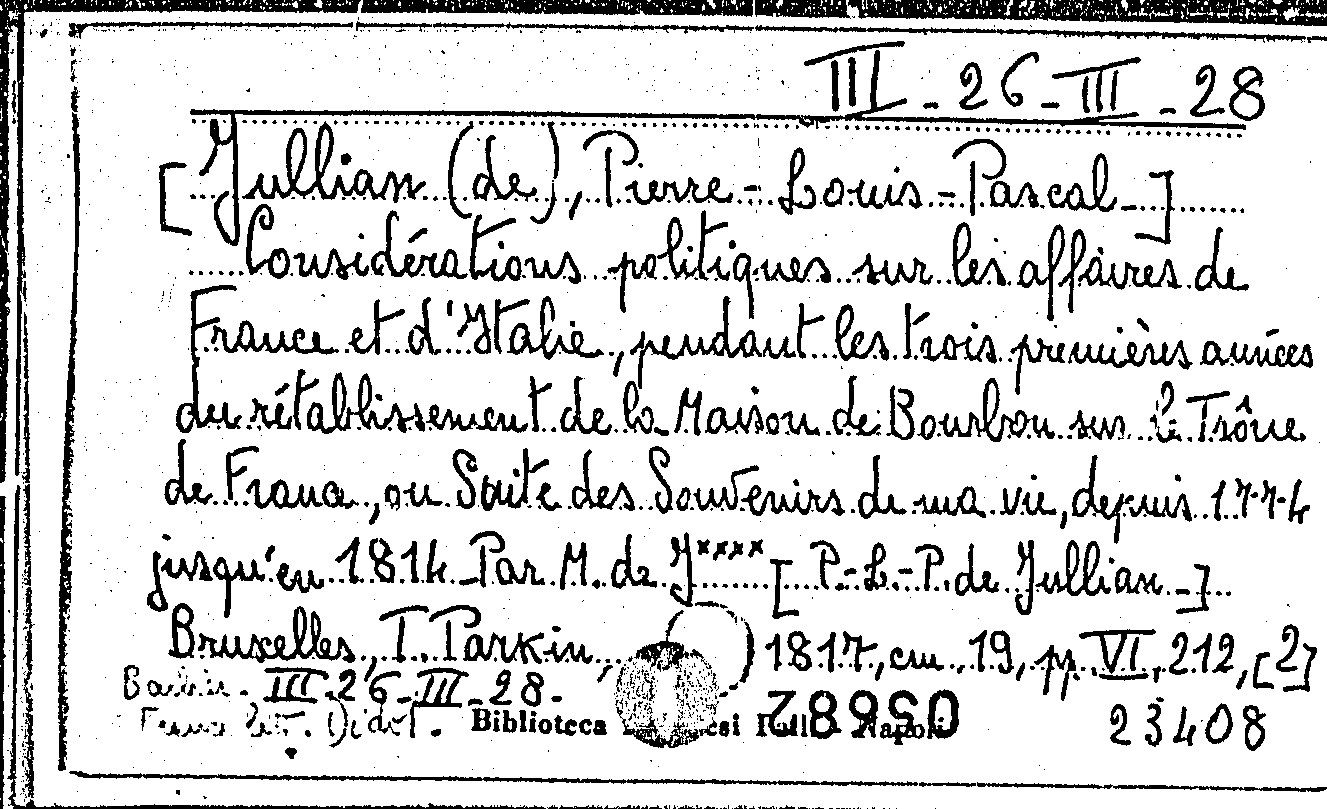 III - 26 - III - 28
[Jullian (de), Pierre-Louis-Pascal-]
Considérations politiques sur les affaires de
France et d'Italie, pendant les trois premières années
du rétablissement de la Maison de Bourbon sur le Trône
de France, ou Suite des Souvenirs de ma vie, depuis 1774
jusqu'en 1814. Par M. de J**** [P.-L.-P. de Jullian-]
Bruxelles, T. Parkin, 1817, cm. 19, pp. VI, 212, [2]
Barbier - III - 26 - III - 28 -
France litt. Didot. Biblioteca Napoli 056682 23408